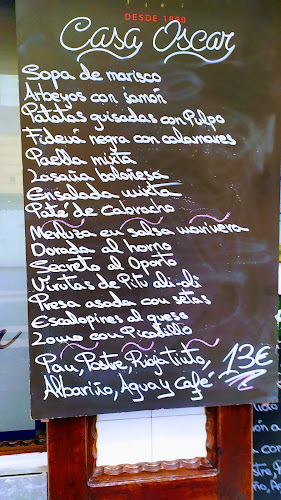 DESDE 1890
Casa Oscar
Sopa de marisco
Arbeyos con jamón
Patatas guisadas con Pulpo
Fideuá negra con calamares
Paella mixta
Lasaña boloñesa
Ensalada mixta
Paté de Cabracho
Merluza en salsa marinera
Dorada al horno
Secreto al Oporto
Virutas de Pitu ali-oli
Presa asada con setas
Escalopines al queso
Lomo con Picadillo
Pan, Postre, Rioja tinto,
Albariño, Agua y Café
13€